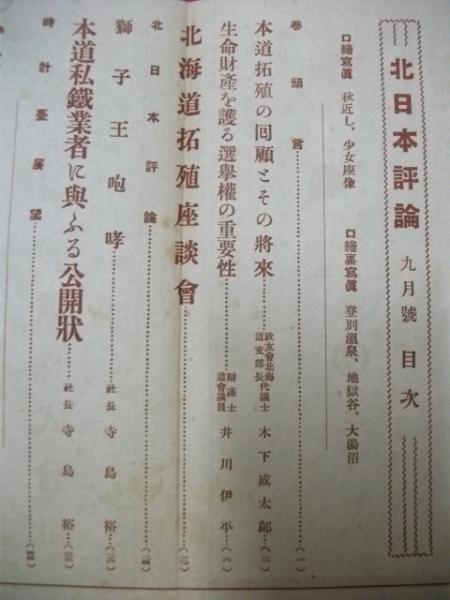 北日本評論 九月號 目次
口繪寫眞 秋近し、少女座像 口繪裏寫眞 登別溫泉、地獄谷、大湯沼
卷頭言…(一)
本道拓殖の回顧とその將來…政友會北海道支部長代議士 木下成太郎…(二)
生命財產を護る選擧權の重要性…辯護士道會議員 井川伊平…(六)
北海道拓殖座談會…
北日本評論…
獅子王咆哮…社長 寺島裕…
本道私鐵業者に與ふる公開狀…社長 寺島裕…
時計臺展望…